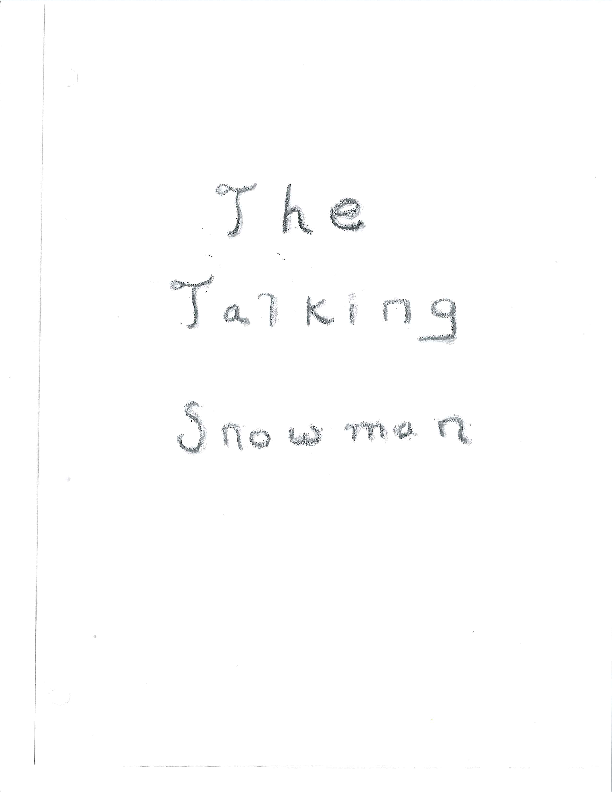 The
Talking
Snowman